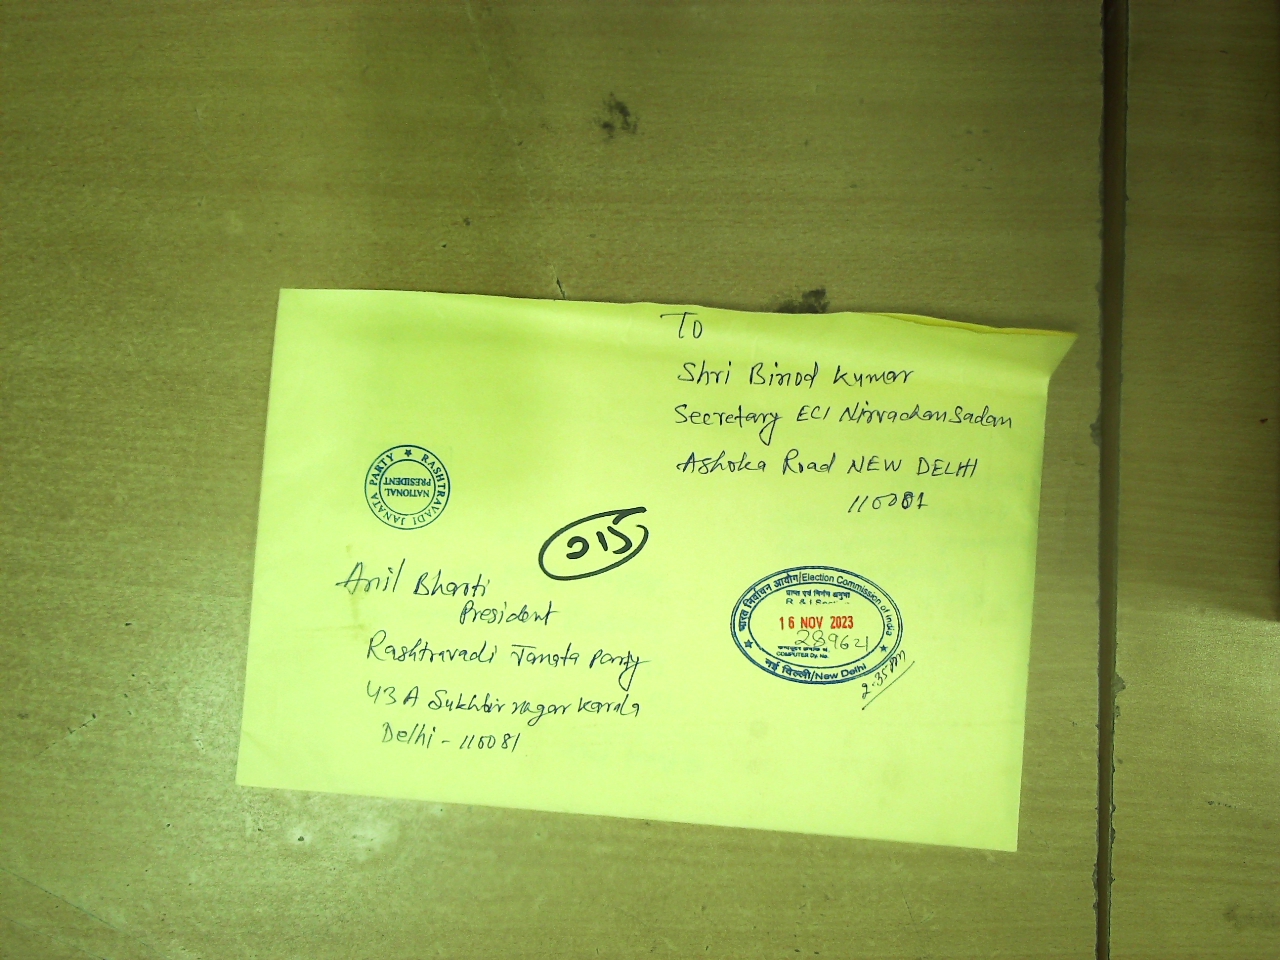 To
Shri Binod Kumar
Secretary ECI Nirvachan Sadan
Ashoka Road NEW DELHI
110081
RASHTRAVADI JANATA PARTY
NATIONAL
PRESIDENT
Anil Bharti
President
Rashtravadi Janata Party
43 A Sukhbir nagar Karala
Delhi - 110081
भारत निर्वाचन आयोग/Election Commission of India
R & I
16 NOV 2023
289621
COMPUTER Dy. No.
नई दिल्ली/New Delhi
2.35 PM